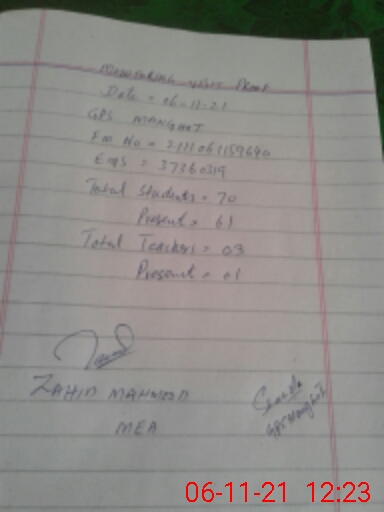 MONITORING VISIT PROOF
Date = 06-11-21
GPS MANGHOT
Em No = 2111061159640
Emis = 37360319
Total Students = 70
Present = 61
Total Teachers = 03
Present = 01
ZAHID MAHMOOD
MEA
GPS Manghot
06-11-21 12:23